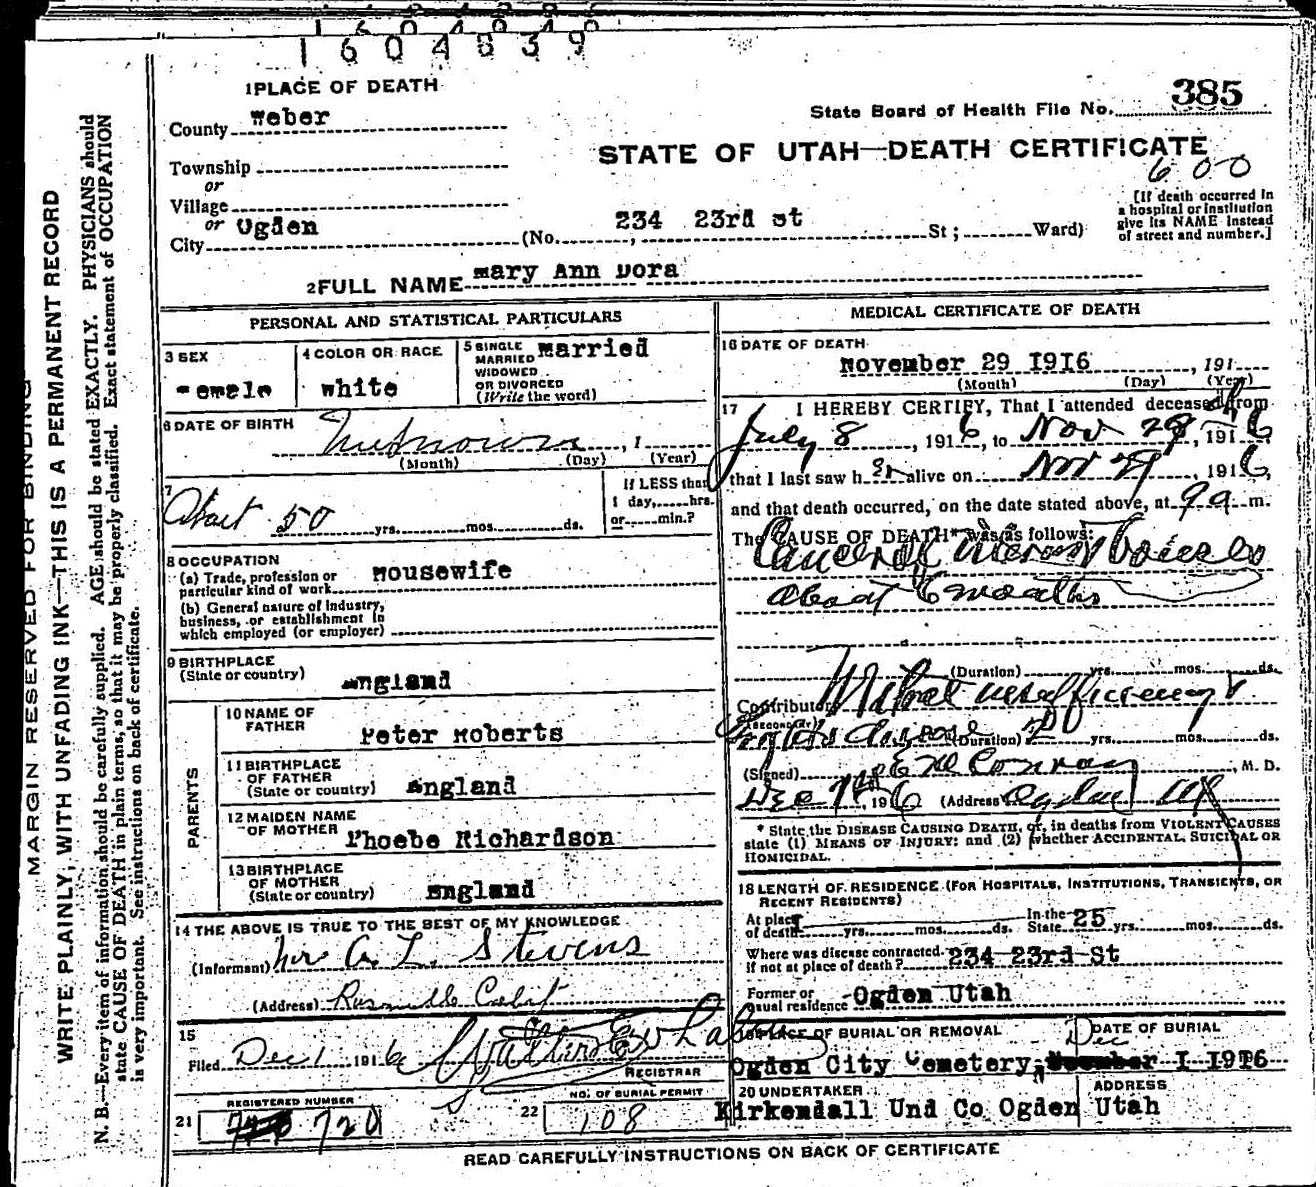 1604839
1 PLACE OF DEATH
385
State Board of Health File No.
County Weber
STATE OF UTAH—DEATH CERTIFICATE
600
Township
or
Village
or
City Ogden (No. 234 23rd st St; Ward)
[If death occurred in
a hospital or institution
give its NAME instead
of street and number.]
2 FULL NAME Mary Ann Dora
PERSONAL AND STATISTICAL PARTICULARS
3 SEX
Female
4 COLOR OR RACE
White
5 SINGLE
MARRIED
WIDOWED
OR DIVORCED
(Write the word)
Married
6 DATE OF BIRTH
Unknown , 1
(Month) (Day) (Year)
7
About 50 yrs. mos. ds.
If LESS than
1 day, hrs.
or min.?
8 OCCUPATION
(a) Trade, profession or
particular kind of work Housewife
(b) General nature of Industry,
business, or establishment in
which employed (or employer)
9 BIRTHPLACE
(State or country) England
PARENTS
10 NAME OF
FATHER Peter Roberts
11 BIRTHPLACE
OF FATHER
(State or country) England
12 MAIDEN NAME
OF MOTHER Phoebe Richardson
13 BIRTHPLACE
OF MOTHER
(State or country) England
14 THE ABOVE IS TRUE TO THE BEST OF MY KNOWLEDGE
(Informant) Mrs A. L. Stevens
(Address) Calif
15
Filed Dec 1 1916
REGISTRAR
REGISTERED NUMBER
21 720
NO. OF BURIAL PERMIT
22 108
MEDICAL CERTIFICATE OF DEATH
16 DATE OF DEATH
November 29 1916 , 191
(Month) (Day) (Year)
17 I HEREBY CERTIFY, That I attended deceased from
July 8 , 1916, to Nov 29, 1916
that I last saw her alive on Nov 29 1916,
and that death occurred, on the date stated above, at 9 a m.
The CAUSE OF DEATH* was as follows:
Cancer of
about 6 months
(Duration) yrs. mos. ds.
Contributory Mitral insufficiency &
(SECONDARY)
Brights disease (Duration) yrs. mos. ds.
(Signed) Conroy, M. D.
Dec 1916 (Address) Ogden Ut
* State the DISEASE CAUSING DEATH, or, in deaths from VIOLENT CAUSES
state (1) MEANS OF INJURY; and (2) whether ACCIDENTAL, SUICIDAL OR
HOMICIDAL.
18 LENGTH OF RESIDENCE (FOR HOSPITALS, INSTITUTIONS, TRANSIENTS, OR
RECENT RESIDENTS)
At place
of death yrs. mos. ds.
In the
State 25 yrs. mos. ds.
Where was disease contracted
if not at place of death? 234 23rd St
Former or
usual residence Ogden Utah
PLACE OF BURIAL OR REMOVAL
Ogden City Cemetery,
DATE OF BURIAL
Dec 1 1916
20 UNDERTAKER
Kirkendall Und Co
ADDRESS
Ogden Utah
READ CAREFULLY INSTRUCTIONS ON BACK OF CERTIFICATE
MARGIN RESERVED FOR BINDING
WRITE PLAINLY, WITH UNFADING INK—THIS IS A PERMANENT RECORD
N. B.—Every item of information should be carefully supplied. AGE should be stated EXACTLY. PHYSICIANS should
state CAUSE OF DEATH in plain terms, so that it may be properly classified. Exact statement of OCCUPATION
is very important. See instructions on back of certificate.